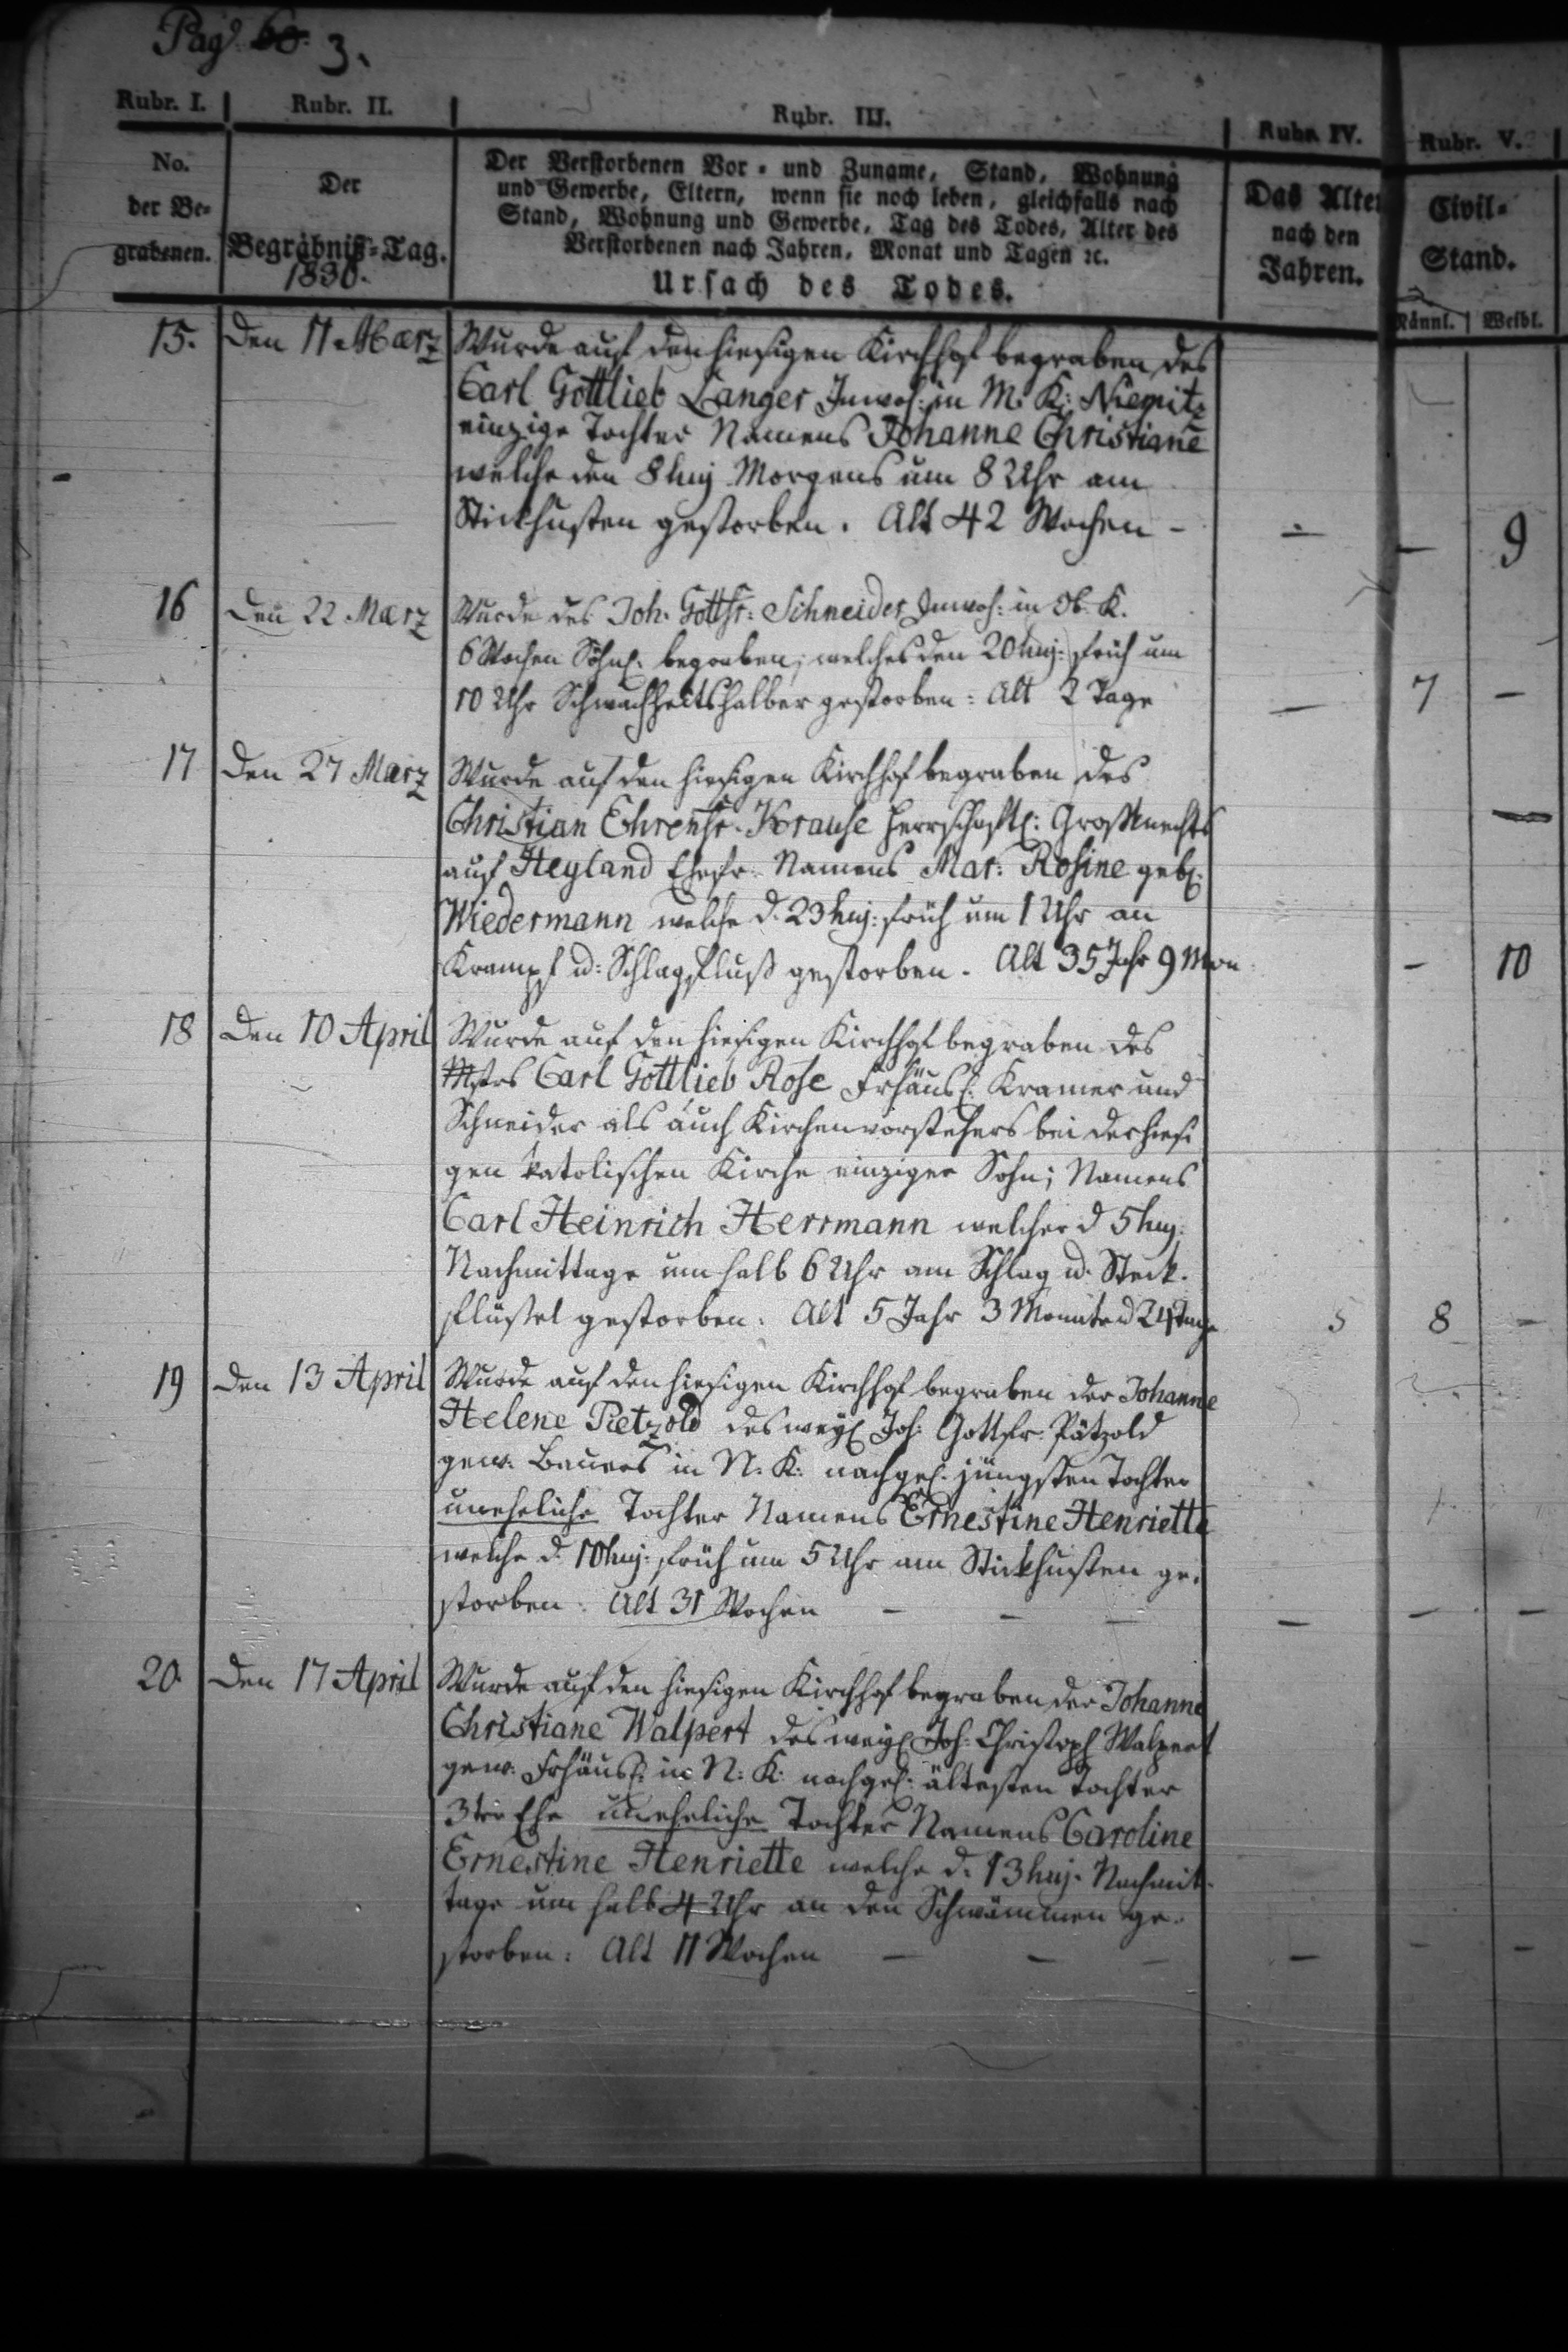 Pag: 60. 3.
Rubr. I. Rubr. II. Rubr. III. Rubr. IV. Rubr. V.
No. der Be- grabenen.
Der Begräbniß-Tag. 1830.
Der Verstorbenen Vor- und Zuname, Stand, Wohnung
und Gewerbe, Eltern, wenn sie noch leben, gleichfalls nach
Stand, Wohnung und Gewerbe, Tag des Todes, Alter des
Verstorbenen nach Jahren, Monat und Tagen ꝛc.
Ursach des Todes.
Das Alter nach den Jahren.
Civil- Stand.
Männl. Weibl.
15. Den 11 Maerz Wurde auf den hiesigen Kirchhof begraben des
Carl Gottlieb Langer Inwoh: in M: K: Niemitz
einzige Tochter Namens Johanne Christiane
welche den 8 huj Morgens um 8 Uhr am
Stickhusten gestorben. Alt 42 Wochen – – – 9
16 Den 22 Maerz Wurde des Joh. Gottfr: Schneider Inwoh: in Ob. K.
6 Wochen Söhnl. begraben; welches den 20 huj: früh um
10 Uhr Schwachheitshalber gestorben: Alt 2 Tage – 7 –
17 Den 27 Maerz Wurde auf den hiesigen Kirchhof begraben des
Christian Ehrenfr. Krause herrschaftl: Großknechts –
auf Heyland Ehefr. Namens Mar: Rosine geb.
Wiedermann welche d. 23 huj: früh um 1 Uhr an
Krampf u: Schlagfluß gestorben. Alt 35 Jahr 9 Mon – 10
18 Den 10 April Wurde auf den hiesigen Kirchhof begraben des
Mstrs Carl Gottlieb Rose Frhäusl. Kramer und
Schneider als auch Kirchenvorstehers bei der hiesi
gen katolischen Kirche einziger Sohn; Namens
Carl Heinrich Herrmann welcher d 5 huj:
Nachmittage um halb 6 Uhr am Schlag u. Steck-
flüssel gestorben: Alt 5 Jahr 3 Monate u 24 tage 5 8 –
19 Den 13 April Wurde auf den hiesigen Kirchhof begraben der Johanne
Helene Pætzold des weyl Joh: Gottfr: Pätzold
gew. Bauers in N: K: nachgel. jüngsten Tochter
uneheliche Tochter Namens Ernestine Henriette
welche d. 10 huj: früh um 5 Uhr am Stickhusten ge-
storben: Alt 31 Wochen – – – – – –
20. Den 17 April Wurde auf den hiesigen Kirchhof begraben der Johanne
Christiane Walpert des weyl Joh: Christoph Walpert
gew: Frhäusl: in N: K: nachgel: ältesten Tochter
3ter Ehe uneheliche Tochter Namens Caroline
Ernestine Henriette welche d. 13 huj. Nachmit-
tage um halb 4 Uhr an den Schwämmen ge-
storben: Alt 11 Wochen – – – – – –